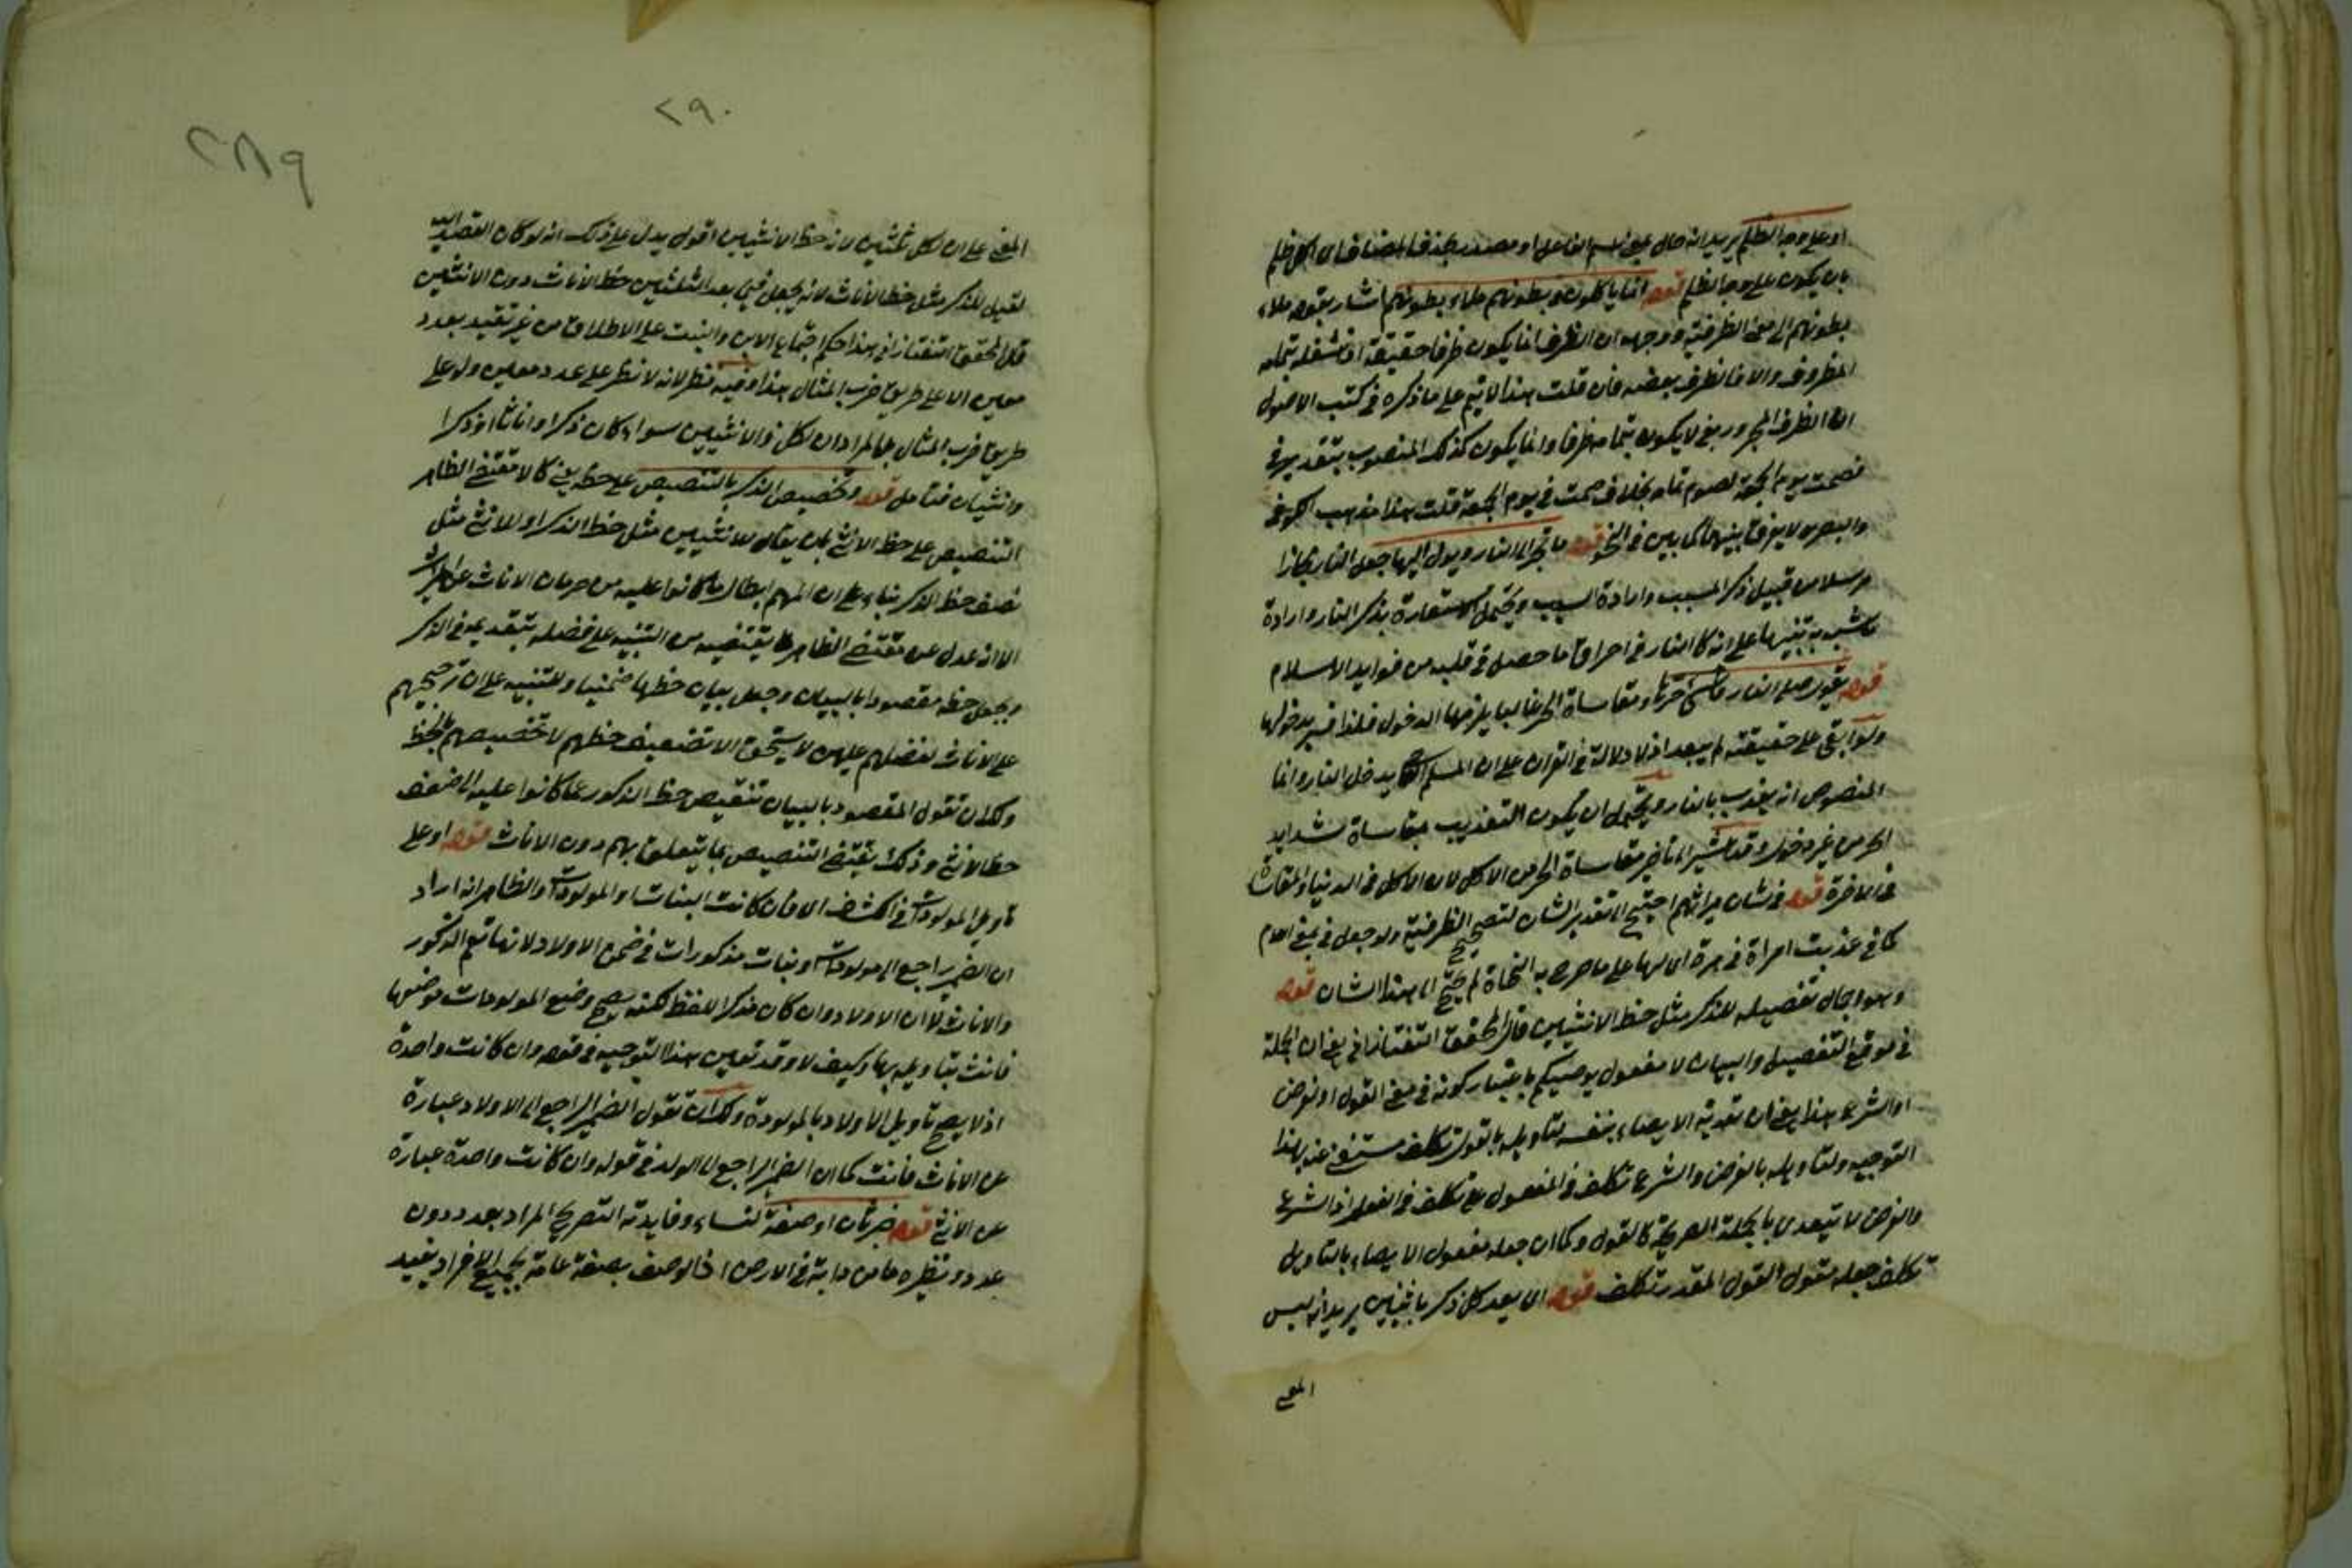 او على وجه الظلم يريد انه حال بمعنى اسم الفاعل او مصدر بحذف المضاف اى اكل ظلم
بان يكون على وجه الظلم قوله انما ياكلون فى بطونهم ملاء بطونهم اشار بقوله ملاء
بطونهم الى معنى الظرفية ووجهه ان الظرف انما يكون ظرفا حقيقة اذ شغله بتمامه
المظروف والا فالظرف بعضه فان قلت هذا لا يتم على ما ذكره فى كتب الاصول
ان الظرف المجرور بفى لا يكون بتمامه ظرفا وانما يكون كذلك المنصوب بتقدير فى
فصمت يوم الجمعة لصوم تمامه بخلاف صمت فى يوم الجمعة قلت هذا مذهب الكوفى
والبصرى لا يفرق بينهما كما بين فى النحو قوله ما يجر الى النار ويؤل اليها جعل النار مجازا
مرسلا من قبيل ذكر المسبب وارادة السبب ويحتمل الاستعارة بذكر النار وارادة
ما شبه به تنبيها على انه كالنار فى احراق ما حصل فى قلبه من فوايد الاسلام
قوله يقول صلى النار قاسى حرها ومقاساة الحر غالبا يلزمها الدخول فلذا فسر بدخولها
ولو ابقى على حقيقته لم يبعد اذ لا دلالة فى القرآن على ان المسلم يدخل النار وانما
المنصوص انه يعذب بالنار ويحتمل ان يكون التعذيب بمقاساة شدايد
الحر من غير دخول وقد اشير الى تاخير مقاساة الحر من الاكل لان الاكل فى الدنيا والمقاساة
فى الاخرة قوله فى شان ميراثهم احتيج الى تقدير الشان لتصحيح الظرفية ولو جعل فى بمعنى اللام
كما فى عذبت امراة فى هرة اى لها على ما صرح به النحاة لم يحتج الى هذا الشان قوله
وهو اجمال تفصيله للذكر مثل حظ الانثيين قال المحقق التفتازانى يعنى ان الجملة
فى موقع التفصيل والبيان لا مفعول يوصيكم باعتبار كونه فى معنى القول او نفرض
او الشرع هذا يعنى ان تعدية الايصاء بنفسه لتاويله بالقول تكلف مستغنى عنه بهذا
التوجيه ولتاويله بالفرض والشرع تكلف فى المفعول مع تكلف فى الفعل اذ الشرع
والفرض لا يتعدى بالجملة الصريحة كالقول وكما ان جعله مفعول الايصاء بالتاويل
تكلف جعله مقول القول المقدر تكلف قوله اى يعد كل ذكر بانثيين يريد انه ليس
المعنى
٢٩٠
٢٨٩
المعنى على ان لكل ثلثين لانه حظ الانثيين اقول يدل على ذلك انه لو كان القصد اليه
لقيل للذكر مثل حظ الاناث لانه يجعل فيما بعد الثلثين حظ الاناث دون الانثيين
قال المحقق التفتازانى هذا حكم اجتماع الابن والبنت على الاطلاق من غير تقييد بعدد
معين الا على طريق ضرب المثال هذا وفيه نظر لانه لا نظر على عدد معين ولو على
طريق ضرب المثال بل المراد ان لكل ذ الانثيين سواء كان ذكرا واناثا او ذكرا
وانثيان فتامل قوله وتخصيص الذكر بالتنصيص على حظه يعنى كان مقتضى الظاهر
التنصيص على حظ الانثى بان يقال للانثيين مثل حظ الذكر او للانثى مثل
نصف حظ الذكر بناء على ان المهم ابطال ما كانوا عليه من حرمان الاناث عن الميراث
الا انه عدل عن مقتضى الظاهر لما يقتضيه من التنبيه على فضله بتقديمه فى الذكر
وبجعل حظه مقصودا بالبيان وجعل بيان حظها ضمنيا وللتنبيه على ان ترجيحهم
على الاناث لفضلهم عليهن لا يستحق الا تضعيف حظهم لا تخصيصهم بالحظ
ولك ان تقول المقصود بالبيان تنقيص حظ الذكور عما كانوا عليه الى ضعف
حظ الانثى وذلك يقتضى التنصيص بما يتعلق بهم دون الاناث قوله او على
تاويل المولودات فى الكشف اى فان كانت البنات او المولودات والظاهر انه اراد
ان الضمير راجع الى مولودات وبنات مذكورات فى ضمن الاولاد لانها تعم الذكور
والاناث لا ان الاولاد وان كان مذكر اللفظ لكنه يصح وضع المولودات موضعها
فانث بتاويله بها وكيف لا وقد تعين هذا التوجيه فى قوله وان كانت واحدة
اذ لا يصح تاويل الاولاد بالمولودة ولك ان تقول الضمير الراجع الى الاولاد عبارة
عن الاناث فانث كما ان الضمير الراجع الى الولد فى قوله وان كانت واحدة عبارة
عن الانثى قوله خبر ثان او صفة لنساء وفايدته التصريح المراد بعدد دون
عدد ونظيره ما من دابة فى الارض اذ الوصف بصفة عامة لجميع الافراد يفيد